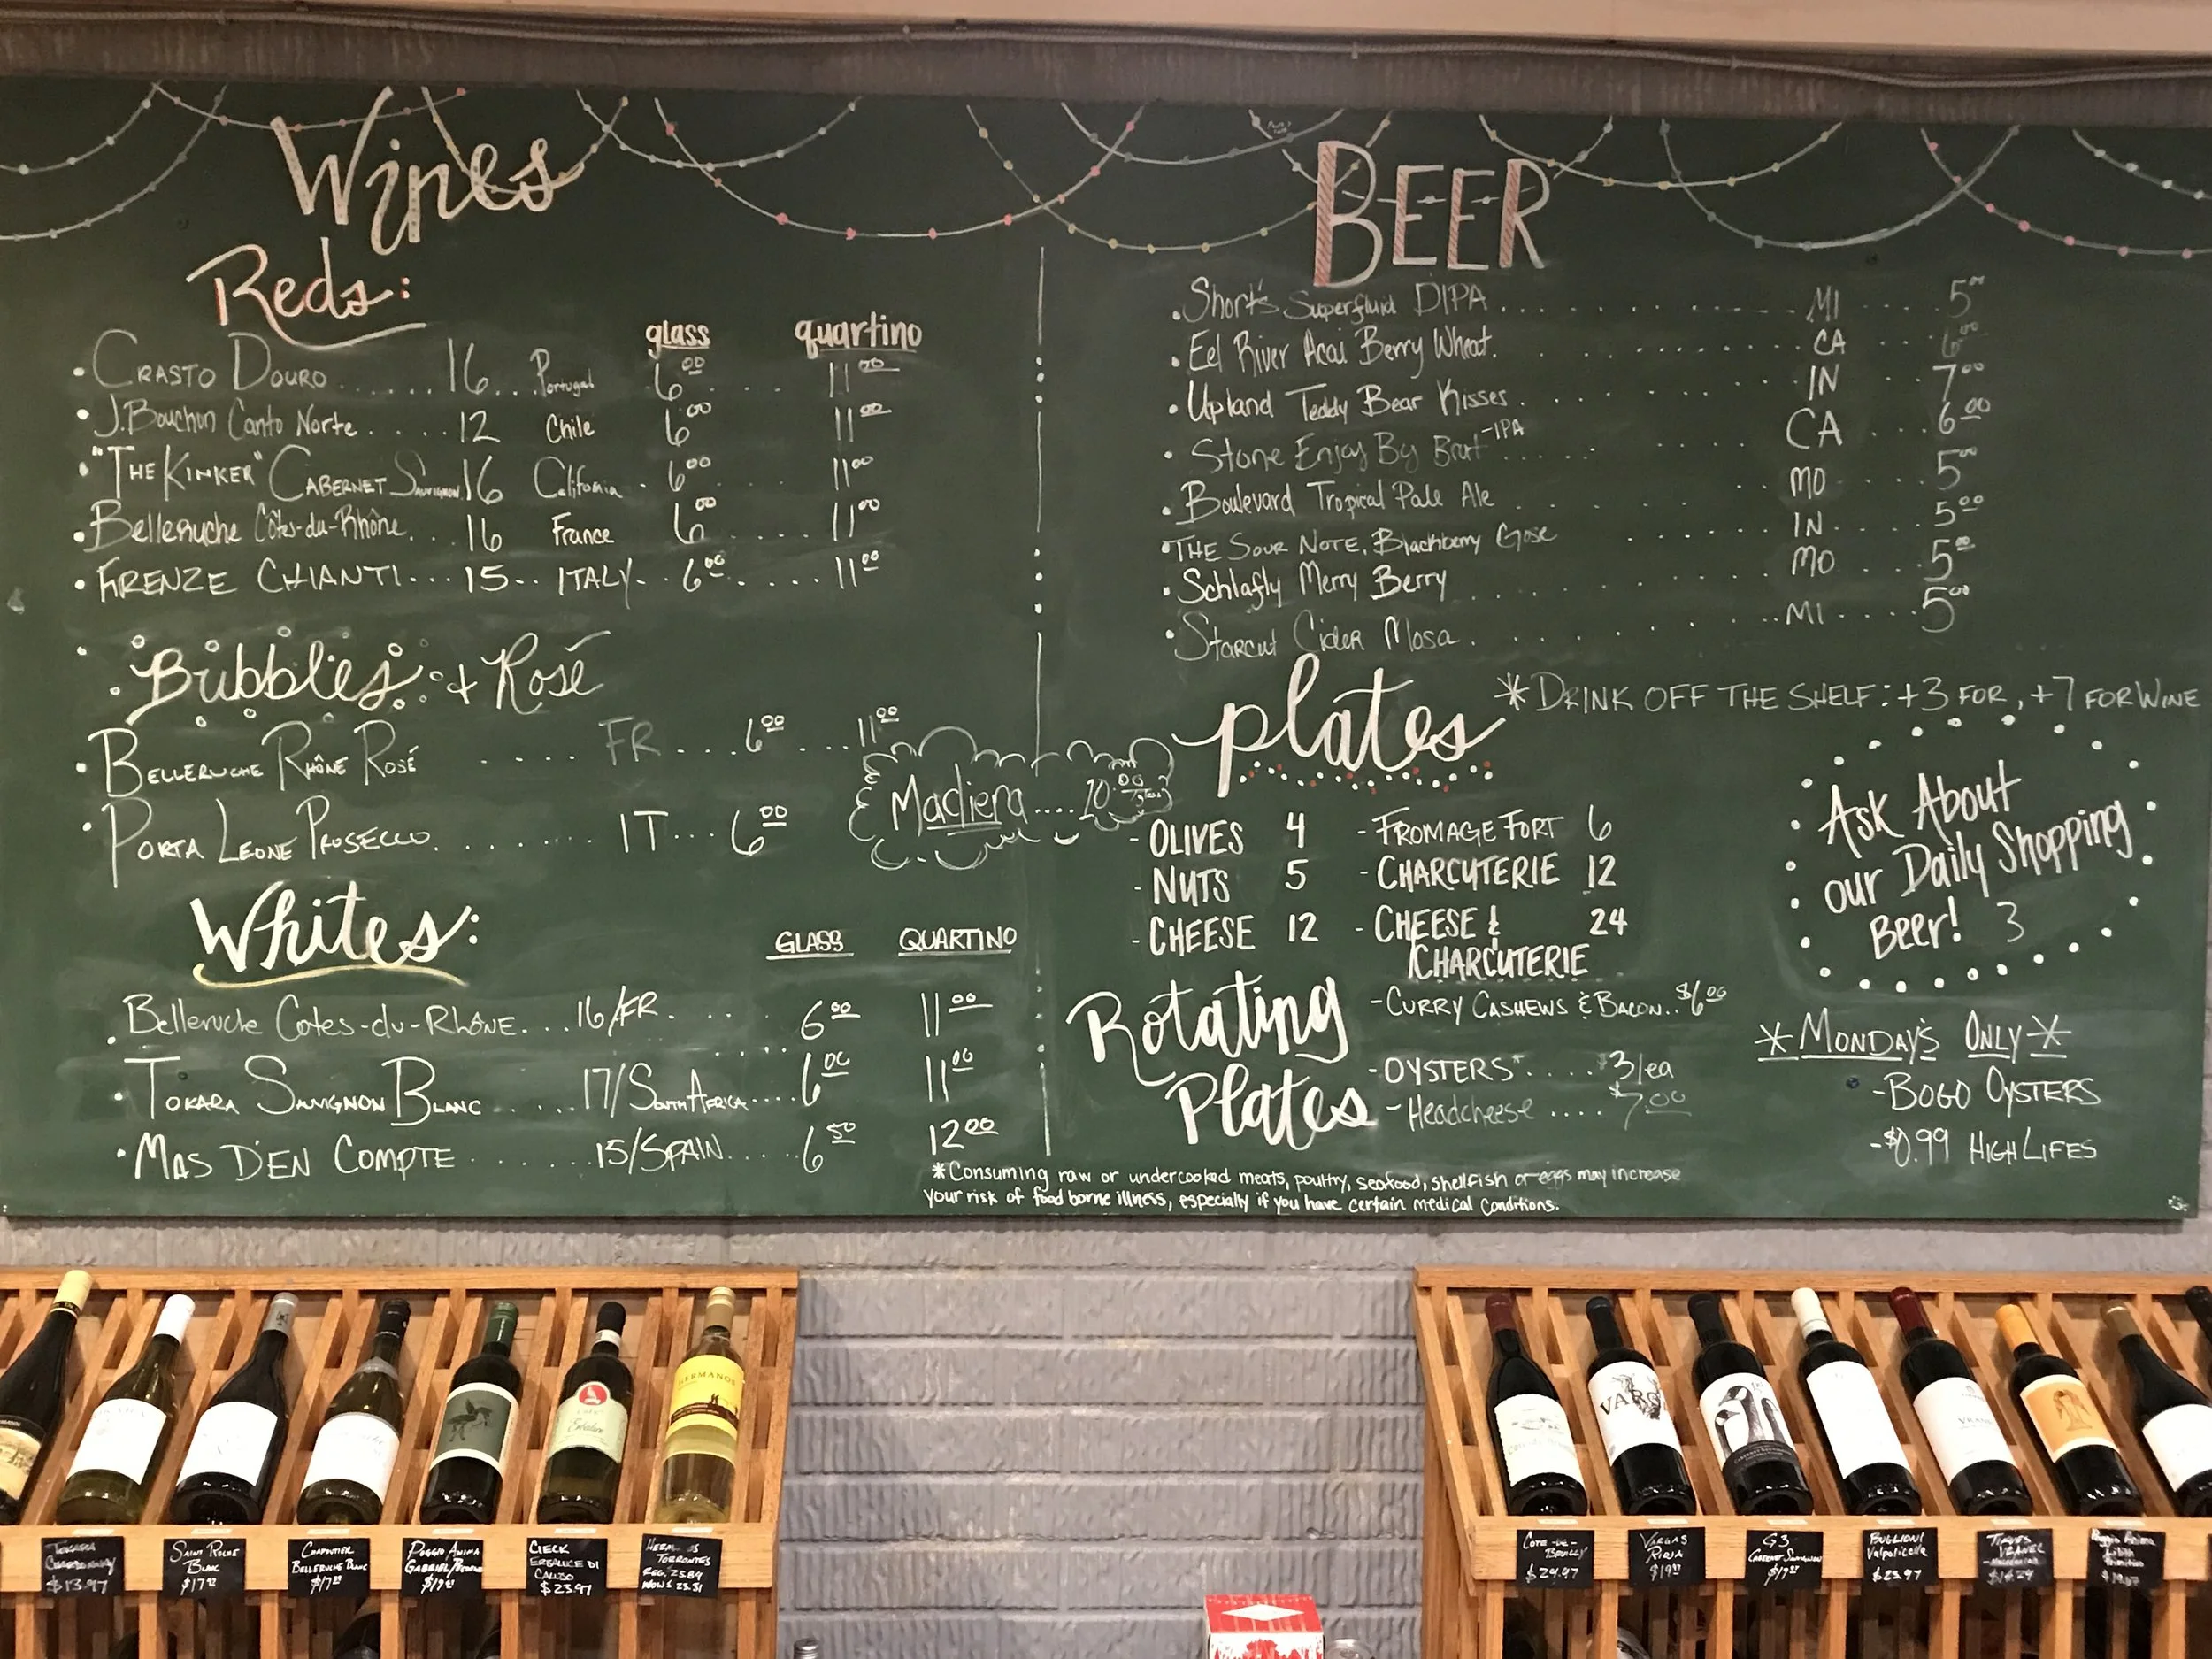 Wines
Reds:
glass quartino
• CRASTO DOURO ...... 16 ... Portugal 6⁰⁰ .... 11⁰⁰
• J.Bouchon Canto Norte ..... 12 Chile 6⁰⁰ 11⁰⁰
• "THE KINKER" CABERNET SAUVIGNON 16 California . 6⁰⁰ .. 11⁰⁰
• Belleruche Côtes-du-Rhône... 16 France 6⁰⁰ ..... 11⁰⁰
• FIRENZE CHIANTI... 15.. ITALY.. 6⁰⁰ ..... 11⁰⁰
Bubbles + Rosé
• BELLERUCHE RHÔNE ROSÉ ..... FR ... 6⁰⁰ ... 11⁰⁰
• PORTA LEONE PROSECCO ........ IT... 6⁰⁰
Madiera .... 10.⁰⁰/glass
Whites:
GLASS QUARTINO
• Belleruche Cotes-du-RHÔNE... 16/FR .... 6⁰⁰ 11⁰⁰
• TOKARA SAUVIGNON BLANC ..... 17/SOUTH AFRICA.... 6⁰⁰ 11⁰⁰
• MAS D'EN COMPTE ....... 15/SPAIN..... 6⁵⁰ 12⁰⁰
BEER
• Short's Superfluid DIPA ........ MI .... 5⁰⁰
• Eel River Acai Berry Wheat. ........ CA 6⁰⁰
• Upland Teddy Bear Kisses . ...... IN ... 7⁰⁰
• Stone Enjoy By Brut -IPA ...... CA ... 6⁰⁰
• Boulevard Tropical Pale Ale ...... MO .... 5⁰⁰
• THE SOUR NOTE, Blackberry Gose ...... IN .... 5⁰⁰
• Schlafly Merry Berry ........ MO .... 5⁰⁰
• Starcut Cider Mosa . ........ MI .... 5⁰⁰
*DRINK OFF THE SHELF: +3 FOR , +7 FOR WINE
plates
- OLIVES 4
- NUTS 5
- CHEESE 12
- FROMAGE FORT 6
- CHARCUTERIE 12
- CHEESE & 24
CHARCUTERIE
Ask About
our Daily Shopping
Beer! 3
Rotating
Plates
- CURRY CASHEWS & BACON.. $6⁰⁰
- OYSTERS* .... $3/ea
- Headcheese .... $7.⁰⁰
* MONDAY'S ONLY *
- BOGO OYSTERS
- $0.99 HIGH LIFES
*Consuming raw or undercooked meats, poultry, seafood, shellfish or eggs may increase
your risk of food borne illness, especially if you have certain medical conditions.
HERMANOS
VARGAS
TOKARA
CHARDONNAY
$13.97
SAINT ROCHE
BLANC
CHAPOUTIER
BELLERUCHE BLANC
POGGIO ANIMA
GABRIEL
CIECK
ERBALUCE DI
CALUSO
$23.97
TORRONTES
COTE-DE-
BROUILLY
$24.97
VARGAS
RIOJA
G3
CABERNET SAUVIGNON
BUGLIONI
Valpolicella
$23.97
TIKVES
VRANEC
Poggio Anima
Lilith
Primitivo